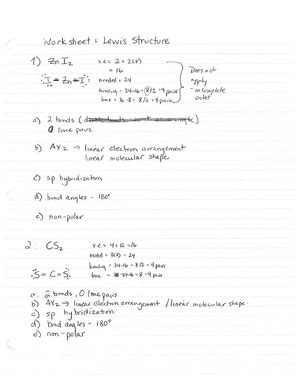 Worksheet: Lewis Structure
1) ZnI2 v.e = 2 + 2(7)
= 16 Does not
:I - Zn - I: needed = 24 apply
bonding = 24-16 = 8/2 = 4 pairs - incomplete
lone = 16-8 = 8/2 = 4 pairs octet
a) 2 bonds
0 lone pairs
b) AX2 → linear electron arrangement
linear molecular shape
c) sp hybridization
d) bond angles - 180°
e) non-polar
2. CS2 v.e = 4+12 = 16
needed = 8(3) = 24
bonding = 24-16 = 8/2 = 4 pairs
:S = C = S: lone = 16-8 = 8/2 = 4 pairs
a. 2 bonds, 0 lone pairs
b) AX2 → linear electron arrangement / linear molecular shape
c) sp hybridization
d) bond angles - 180°
e) non-polar